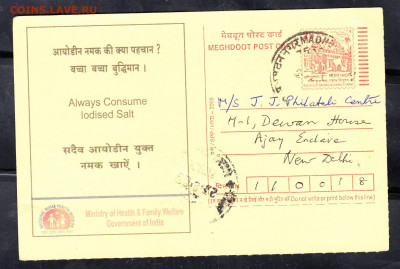 आयोडीन नमक की क्या पहचान ?
बच्चा बच्चा बुद्धिमान ।
Always Consume
Iodised Salt
सदैव आयोडीन युक्त
नमक खाऐं ।
Ministry of Health & Family Welfare
Government of India
मेघदूत पोस्ट कार्ड
MEGHDOOT POST
M/S J. J. Philatelic Centre
M-1, Dewan House
Ajay Enclave
New Delhi.
पिन PIN
1 1 0 0 1 8
Do not write or print below this line